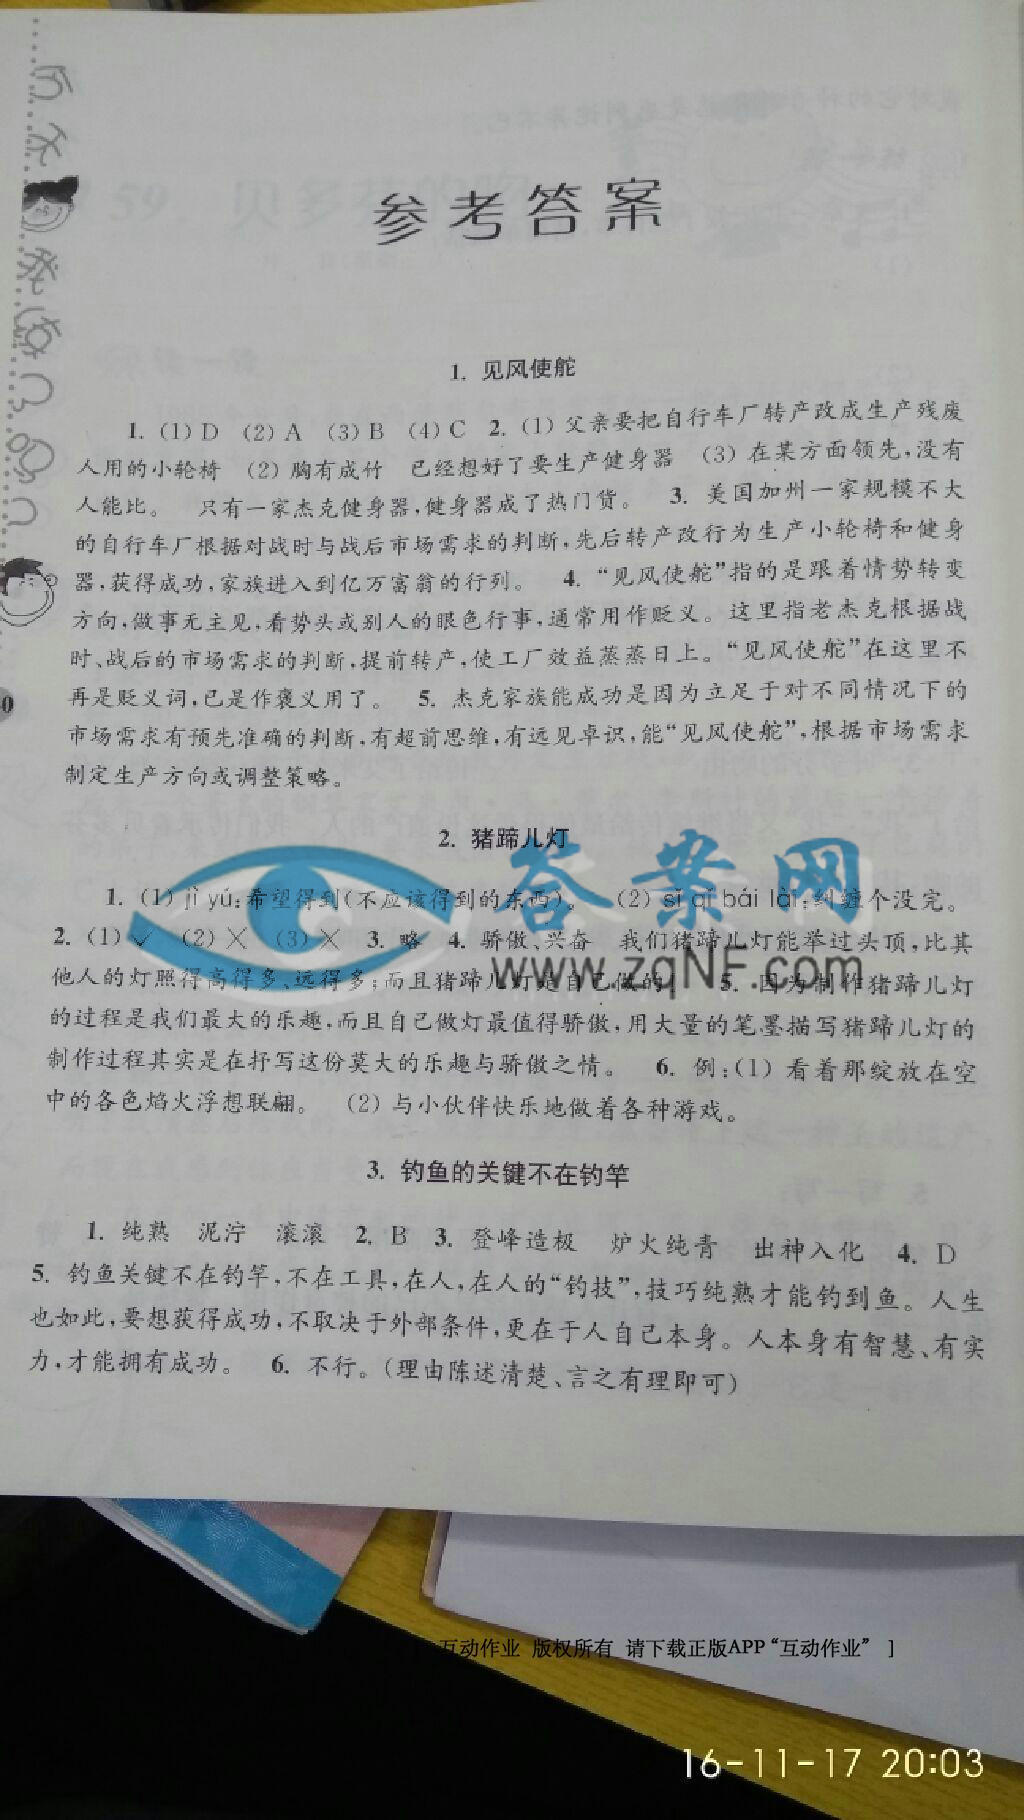 参考答案
1. 见风使舵
1. (1) D (2) A (3) B (4) C 2. (1) 父亲要把自行车厂转产改成生产残废
人用的小轮椅 (2) 胸有成竹 已经想好了要生产健身器 (3) 在某方面领先,没有
人能比。 只有一家杰克健身器,健身器成了热门货。 3. 美国加州一家规模不大
的自行车厂根据对战时与战后市场需求的判断,先后转产改行为生产小轮椅和健身
器,获得成功,家族进入到亿万富翁的行列。 4. “见风使舵”指的是跟着情势转变
方向,做事无主见,看势头或别人的眼色行事,通常用作贬义。这里指老杰克根据战
时、战后的市场需求的判断,提前转产,使工厂效益蒸蒸日上。“见风使舵”在这里不
再是贬义词,已是作褒义用了。 5. 杰克家族能成功是因为立足于对不同情况下的
市场需求有预先准确的判断,有超前思维,有远见卓识,能“见风使舵”,根据市场需求
制定生产方向或调整策略。
2. 猪蹄儿灯
1. (1) jì yú:希望得到(不应该得到的东西)。 (2) sǐ qī bái lài:纠缠个没完。
2. (1) ✓ (2) × (3) × 3. 略 4. 骄傲、兴奋 我们猪蹄儿灯能举过头顶,比其
他人的灯照得高得多、远得多;而且猪蹄儿灯是自己做的! 5. 因为制作猪蹄儿灯
的过程是我们最大的乐趣,而且自己做灯最值得骄傲,用大量的笔墨描写猪蹄儿灯的
制作过程其实是在抒写这份莫大的乐趣与骄傲之情。 6. 例:(1) 看着那绽放在空
中的各色焰火浮想联翩。 (2) 与小伙伴快乐地做着各种游戏。
3. 钓鱼的关键不在钓竿
1. 纯熟 泥泞 滚滚 2. B 3. 登峰造极 炉火纯青 出神入化 4. D
5. 钓鱼关键不在钓竿,不在工具,在人,在人的“钓技”,技巧纯熟才能钓到鱼。人生
也如此,要想获得成功,不取决于外部条件,更在于人自己本身。人本身有智慧、有实
力,才能拥有成功。 6. 不行。(理由陈述清楚、言之有理即可)
0
答案网
www.zqNF.com
互动作业 版权所有 请下载正版APP“互动作业” ]
16-11-17 20:03